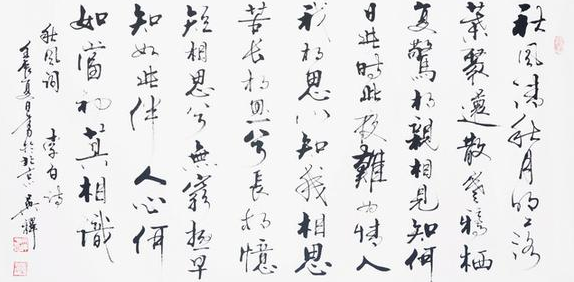 秋風清秋月明落
葉聚還散寒鴉栖
复驚相親相見知何
日此時此夜難為情入
我相思門知我相思
苦長相思兮長相憶
短相思兮無窮極早
知如此絆人心何
如當初莫相識
秋風詞 李白詩
壬辰夏日書於